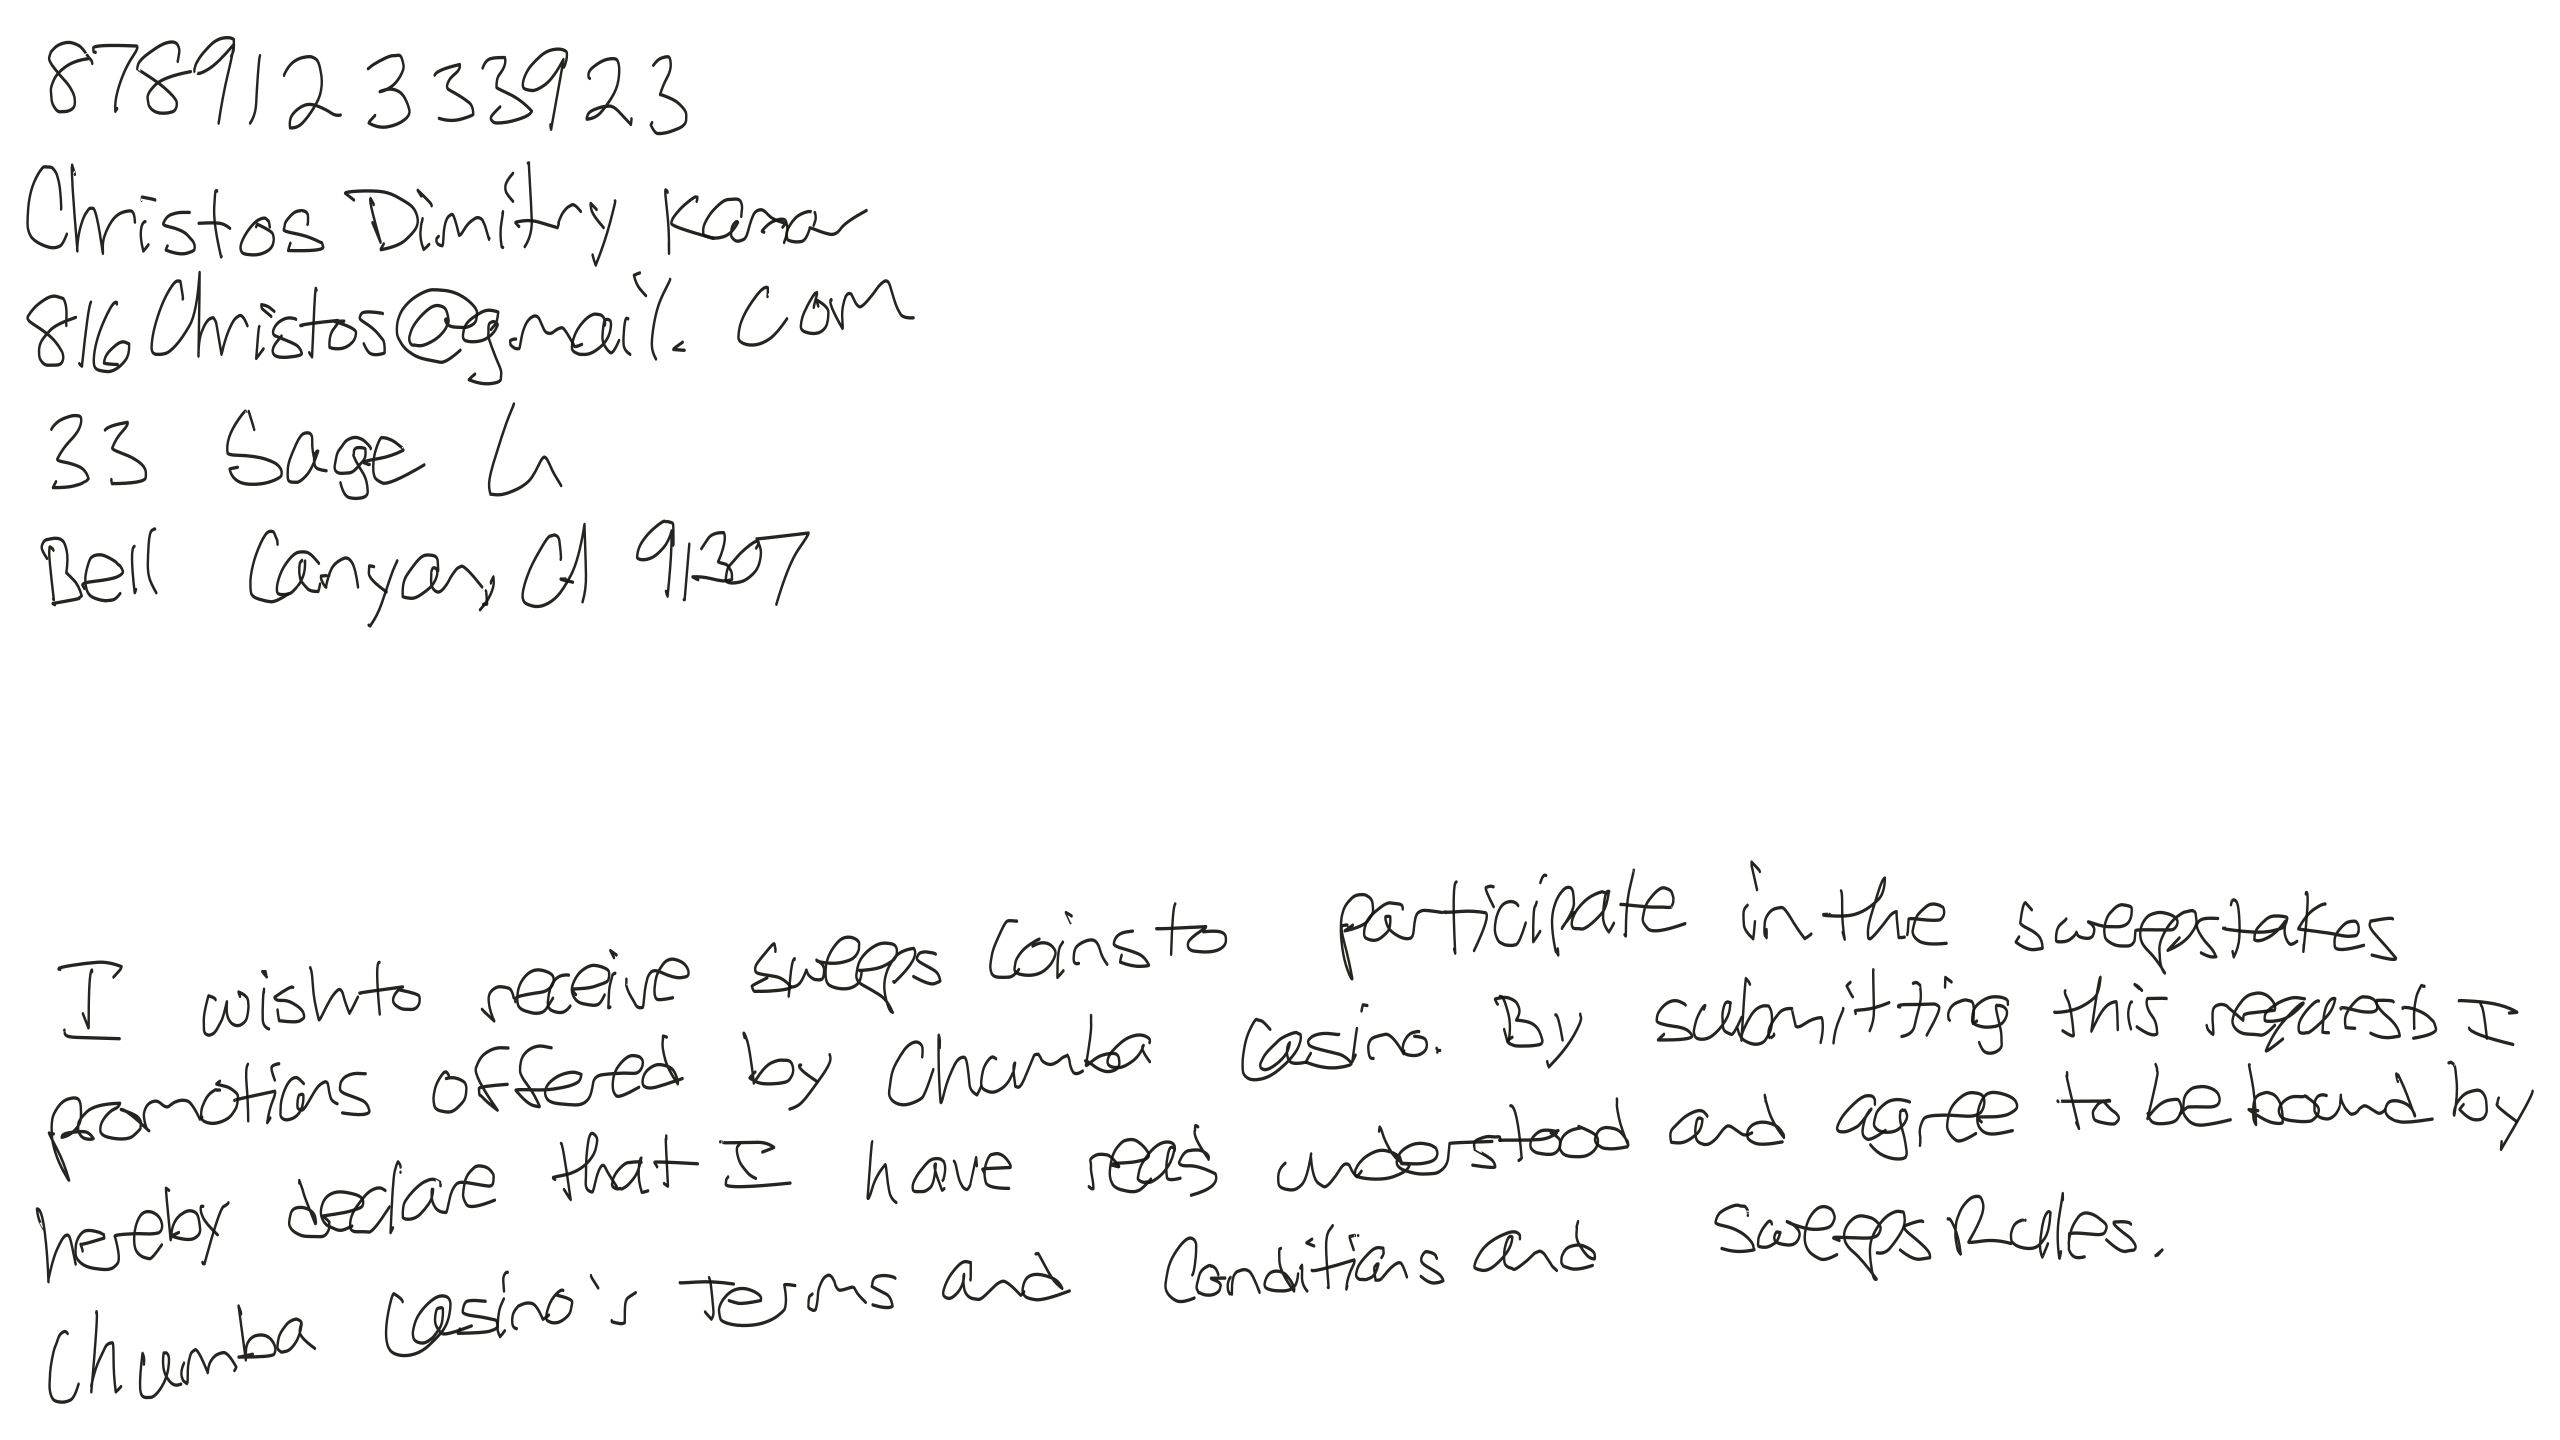 878912333923
Christos Dimitry Karar
816Christos@gmail.com
33 Sage Ln
Bell Canyon, CA 91307
I wish to receive sweeps Coins to participate in the sweepstakes
promotions offered by Chumba Casino. By submitting this request I
hereby declare that I have read understood and agree to be bound by
Chumba Casino's Terms and Conditions and Sweeps Rules.